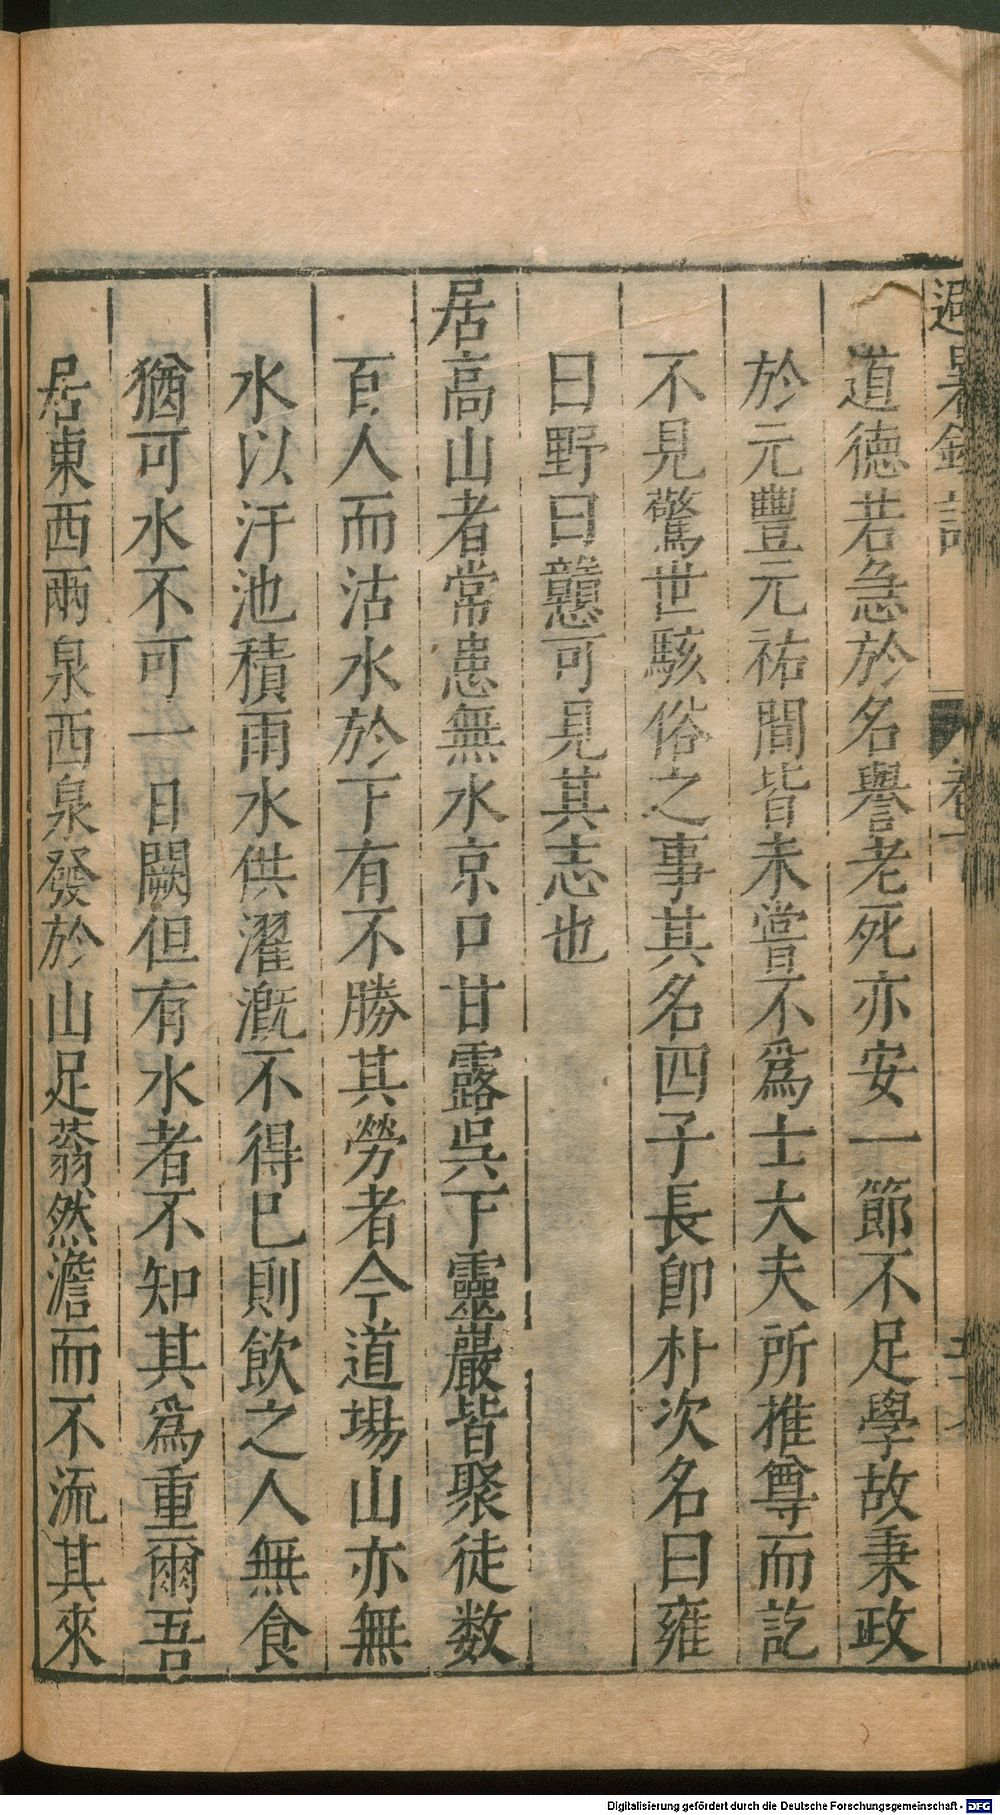 避暑錄話
卷一
道德若急於名譽老死亦安一節不足學故秉政
於元豐元祐間皆未嘗不爲士大夫所推尊而訖
不見驚世駭俗之事其名四子長卽朴次名曰雍
曰野曰戇可見其志也
居高山者常患無水京口甘露吳下靈巖皆聚徒数
百人而沽水於下有不勝其勞者今道場山亦無
水以汙池積雨水供濯漑不得已則飮之人無食
猶可水不可一日闕但有水者不知其爲重爾吾
居東西兩泉西泉發於山足蓊然澹而不流其來
Digitalisierung gefördert durch die Deutsche Forschungsgemeinschaft - DFG